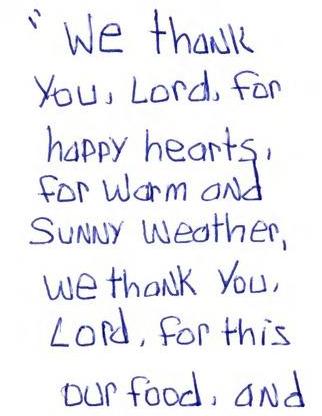 " We thank
You, Lord, for
happy hearts,
for warm and
Sunny Weather,
We thank You,
Lord, for this
our food, and